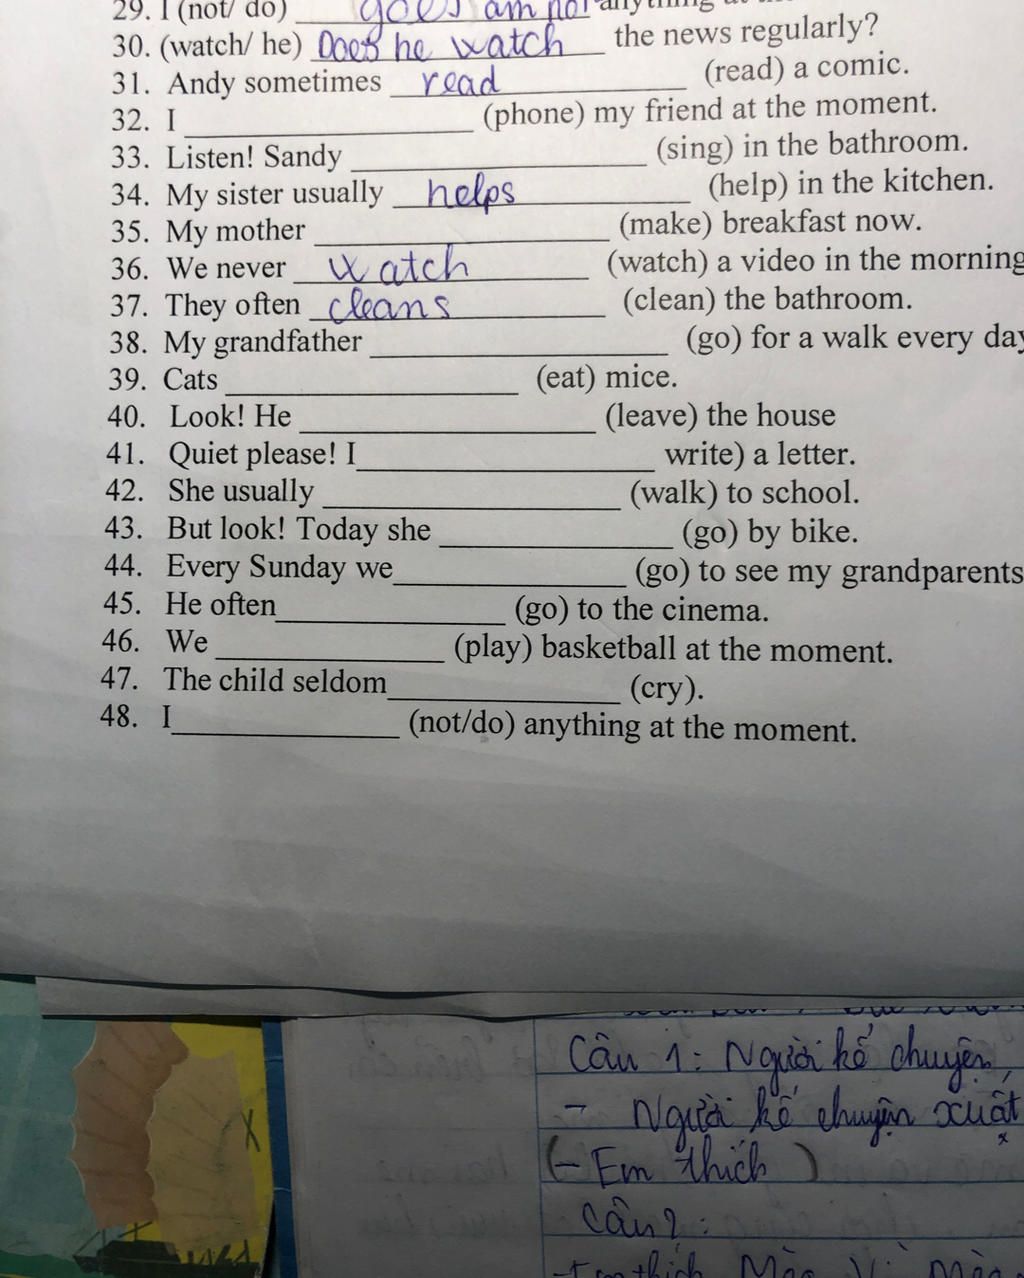 29. I (not/ do) goes am not anything at the
30. (watch/ he) Does he watch the news regularly?
31. Andy sometimes read (read) a comic.
32. I ____ (phone) my friend at the moment.
33. Listen! Sandy ____ (sing) in the bathroom.
34. My sister usually helps (help) in the kitchen.
35. My mother ____ (make) breakfast now.
36. We never watch (watch) a video in the morning
37. They often cleans (clean) the bathroom.
38. My grandfather ____ (go) for a walk every day
39. Cats ____ (eat) mice.
40. Look! He ____ (leave) the house
41. Quiet please! I ____ write) a letter.
42. She usually ____ (walk) to school.
43. But look! Today she ____ (go) by bike.
44. Every Sunday we ____ (go) to see my grandparents
45. He often ____ (go) to the cinema.
46. We ____ (play) basketball at the moment.
47. The child seldom ____ (cry).
48. I ____ (not/do) anything at the moment.
Câu 1: Người kể chuyện,
- Người kể chuyện xuất
(- Em thích )
Câu 2:
- Em thích Mèo Vì Mèo